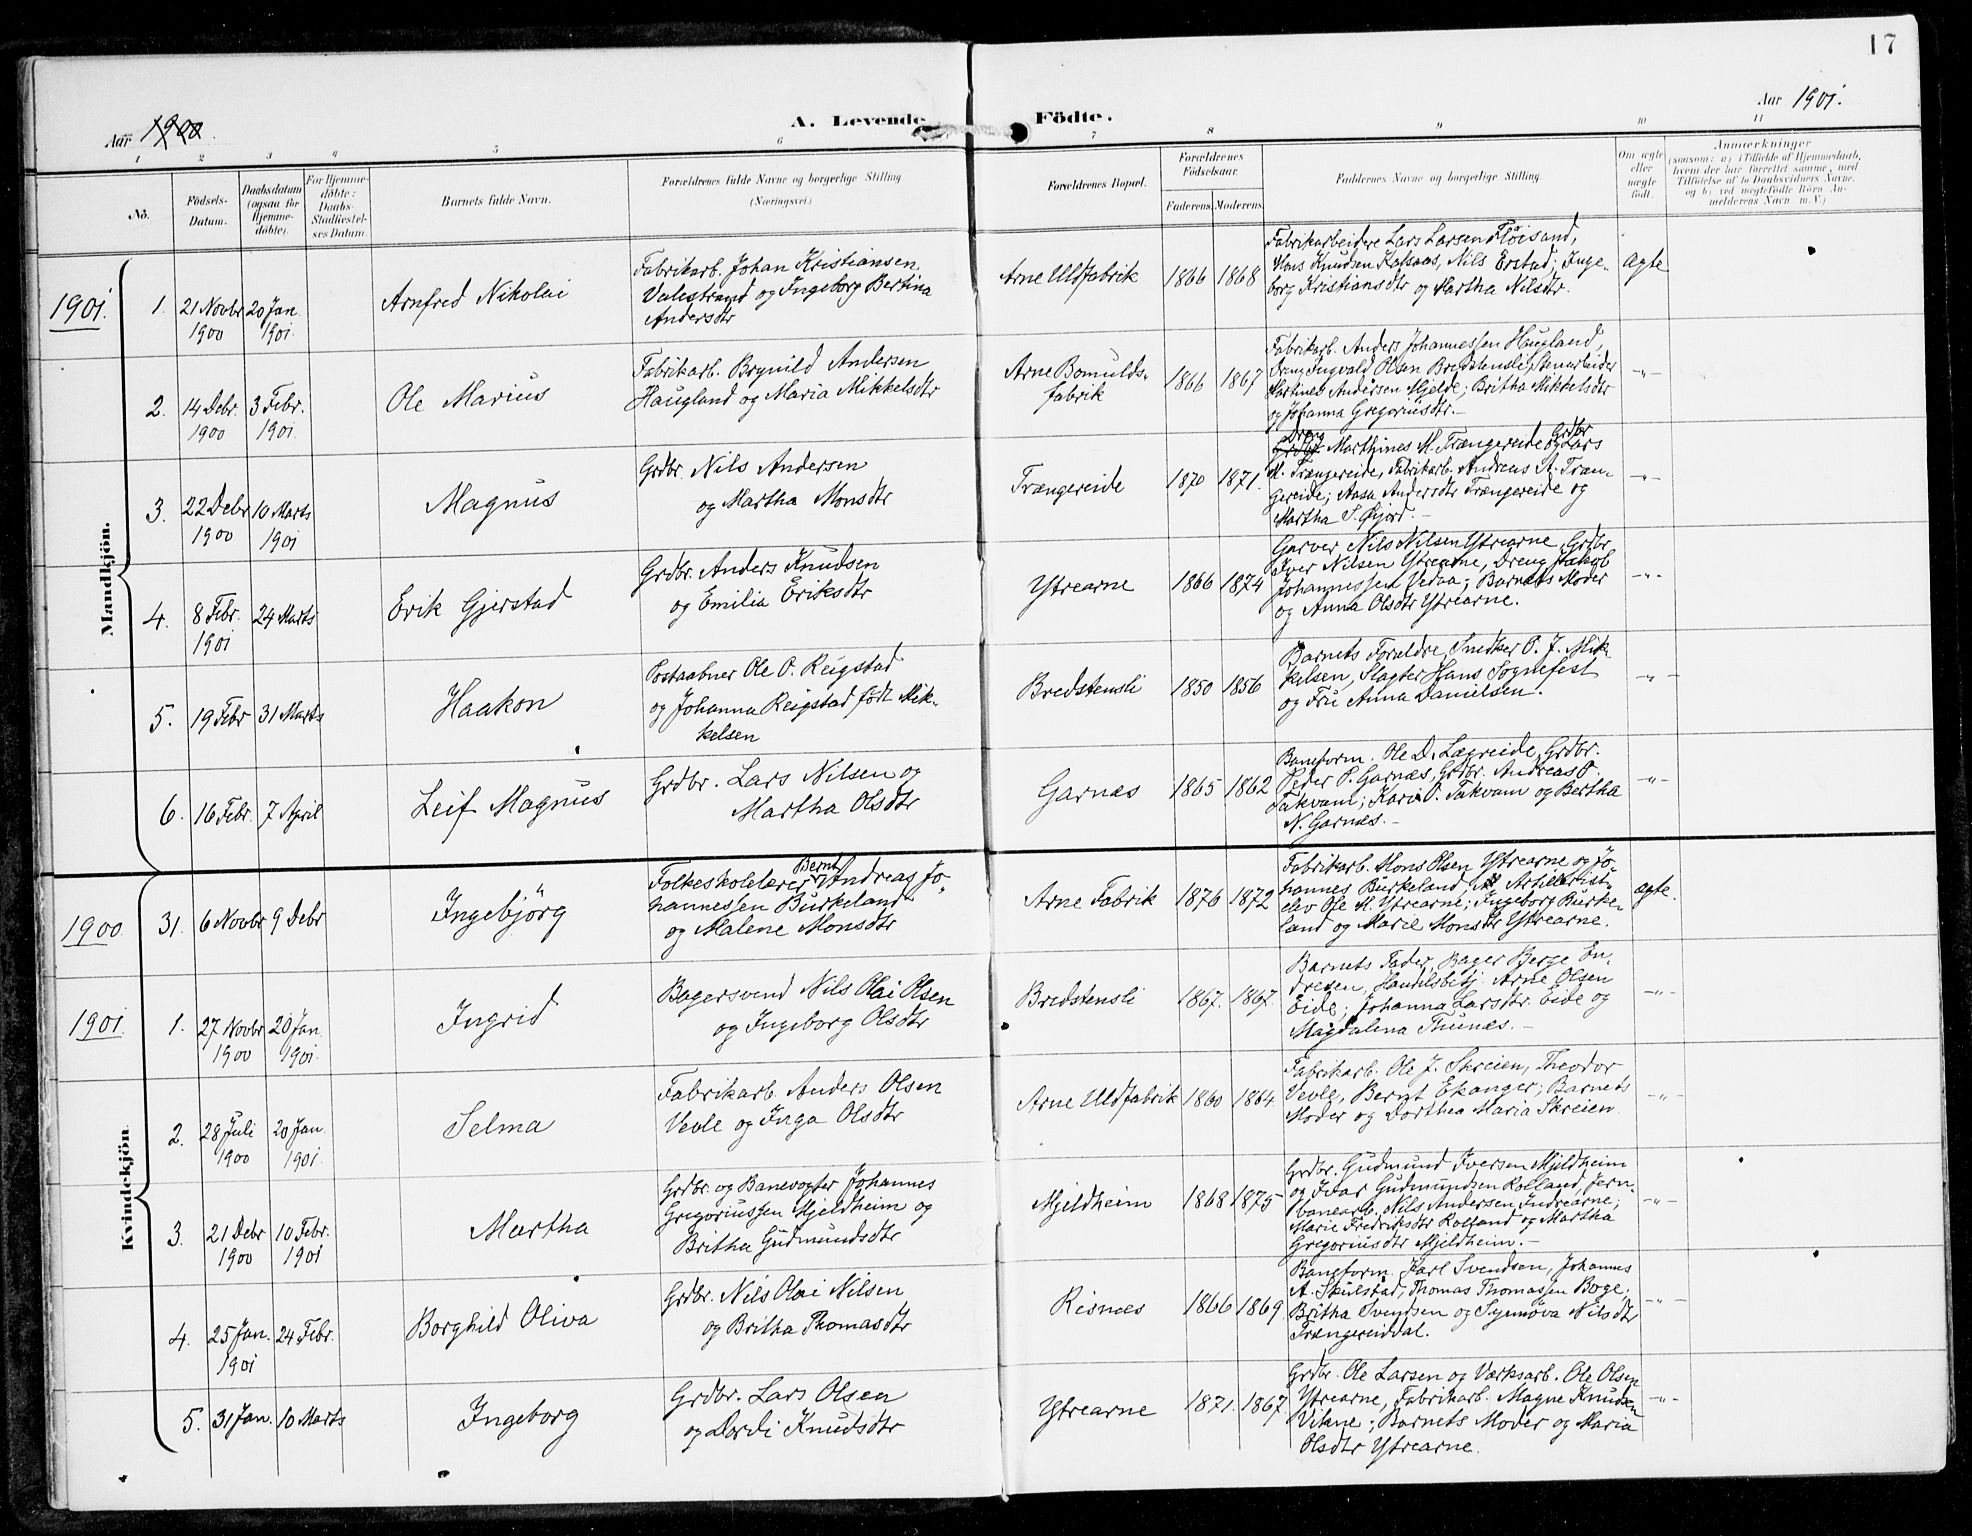 17
Aar 1900
A. Levende
Födte.
Aar 1901.
1 2 3 4 5 6 7 8 9 10 11
No.
Födsels-
Datum.
Daabsdatum
(ogsaa for
Hjemme-
döbte).
For Hjemme-
döbte:
Daabs-
Stadfæstel-
ses Datum.
Barnets fulde Navn.
Forældrenes fulde Navne og borgerlige Stilling
(Næringsvei.)
Forældrenes Bopæl.
Forældrenes
Födselsaar.
Faderens. Moderens.
Faddernes Navne og borgerlige Stilling.
Om ægte
eller
uægte
födt.
Anmærkninger
(saasom: a) i Tilfælde af Hjemmedaab,
hvem der har forrettet samme, med
Tilföielse af to Daabsvidners Navne,
og b) ved uægtefödte Börn An-
melderens Navn m. V.)
Mandkjön.
1901.
1. 21 Novbr 1900
20 Jan. 1901.
Arnfred Nikolai
Fabrikarb. Johan Kristiansen
Valestrand og Ingeborg Bertina
Andersdtr
Arne Uldfabrik
1866 1868
Fabrikarbeidere Lars Larsen Fløisand,
Hans Knudsen Kafsaas, Nils Erstad; Inge-
borg Kristiansdtr og Martha Nilsdtr.
Ægte
2. 14 Debr. 1900
3 Febr. 1901.
Ole Marius
Fabrikarb. Brynild Andersen
Haugland og Maria Mikkelsdtr
Arne Bomulds-
fabrik
1866 1867
Fabrikarb. Anders Johannessen Haugland,
Dreng Ingvald Olsen Bredstensli, Stenarbeider
Martines Andersen Mjelde; Britha Mikkelsdtr
og Johanna Gregoriusdtr.-
-"-
3. 22 Debr 1900
10 Marts 1901
Magnus
Grdbr. Nils Andersen
og Martha Monsdtr
Trængereide
1870 1871.
Dreng Grdbr
Grdbr Marthines M. Trængereide og Lars
M. Trængereide, Fabrikarb. Andreas A. Træn-
gereide; Aasa Andersdtr Trængereide og
Martha S. Øyjord.-
-"-
4. 8 Febr. 1901
24 Marts
Erik Gjerstad
Grdbr. Anders Knudsen
og Emilia Eriksdtr
Ytrearne
1866 1874
Garver Nils Nilsen Ytrearne, Grdbr.
Iver Nilsen Ytrearne, Dreng Jakob
Johannessen Vedaa; Barnets Moder
og Anna Olsdtr Ytrearne.
-"-
5. 19 Febr
31 Marts
Haakon
Postaabner Ole O. Reigstad
og Johanna Reigstad født Mik-
kelsen
Bredstensli
1850 1856
Barnets Forældre, Snedker P. J. Mik-
kelsen, Slagter Hans Sognefest
og Fru Anna Danielsen.
-"-
6. 16 Febr.
7 April
Leif Magnus
Grdbr. Lars Nilsen og
Martha Olsdtr
Garnæs
1865 1862
Baneform. Ole D. Lægreide, Grdbr.
Peder P. Garnæs, Grdbr. Andreas O.
Takvam; Kari O. Takvam og Bertha
N. Garnæs.-
-"-
Kvindekjön.
1900
31. 6 Novbr
9 Debr
Ingebjörg
Bernt
Folkeskolelærer Andreas Jo-
hannessen Burkeland
og Malene Monsdtr
Arne Fabrik
1876 1872
Fabrikarb. Mons Olsen Ytrearne og Jo-
hannes Burkeland, Artillerist-
elev Ole M. Ytrearne; Ingeborg Burke-
land og Marie Monsdtr Ytrearne.
ægte.
1901.
1. 27 Novbr 1900
20 Jan. 1901.
Ingrid
Bagersvend Nils Olai Olsen
og Ingeborg Olsdtr
Bredstensli
1867. 1867.
Barnets Fader, Bager Berge En-
dresen, Handelsbetj. Arne Olsen
Eide; Johanna Larsdtr. Eide og
Magdalena Thunæs.-
-"-
2. 28 Juli 1900
20 Jan. 1901.
Selma
Fabrikarb. Anders Olsen
Vevle og Inga Olsdtr
Arne Uldfabrik
1860 1864.
Fabrikarb. Ole J. Skreien, Theodor
Vevle, Bernt Ekanger; Barnets
Moder og Dorthea Maria Skreien.
-"-
3. 21 Debr 1900
10 Febr. 1901
Martha
Grdbr. og Banevogter Johannes
Gregoriussen Mjeldheim og
Britha Gudmundsdtr
Mjeldheim
1868 1875
Grdbr. Gudmund Iversen Mjeldheim
og Ivar Gudmundsen Rolland, Jern-
banearb. Nils Andersen Indrearne;
Marie Fredriksdtr Rolland og Martha
Gregoriusdtr Mjeldheim.-
-"-
4. 25 Jan. 1901
24 Febr.
Borghild Oliva
Grdbr. Nils Olai Nilsen
og Britha Thomasdtr
Risnæs
1866 1869
Baneform. Karl Svendsen, Johannes
A. Skulstad, Thomas Thomassen Boge;
Britha Svendsen og Synnöva Nilsdtr
Trængereiddal.
-"-
5. 31 Jan.
10 Marts
Ingeborg
Grdbr. Lars Olsen
og Dordi Knutsdtr
Ytrearne
1871. 1867.
Grdbr. Ole Larsen og Værksarb. Ole Olsen
Ytrearne, Fabrikarb. Magne Knudsen
Vikne; Barnets Moder og Maria
Olsdtr Ytrearne.
-"-